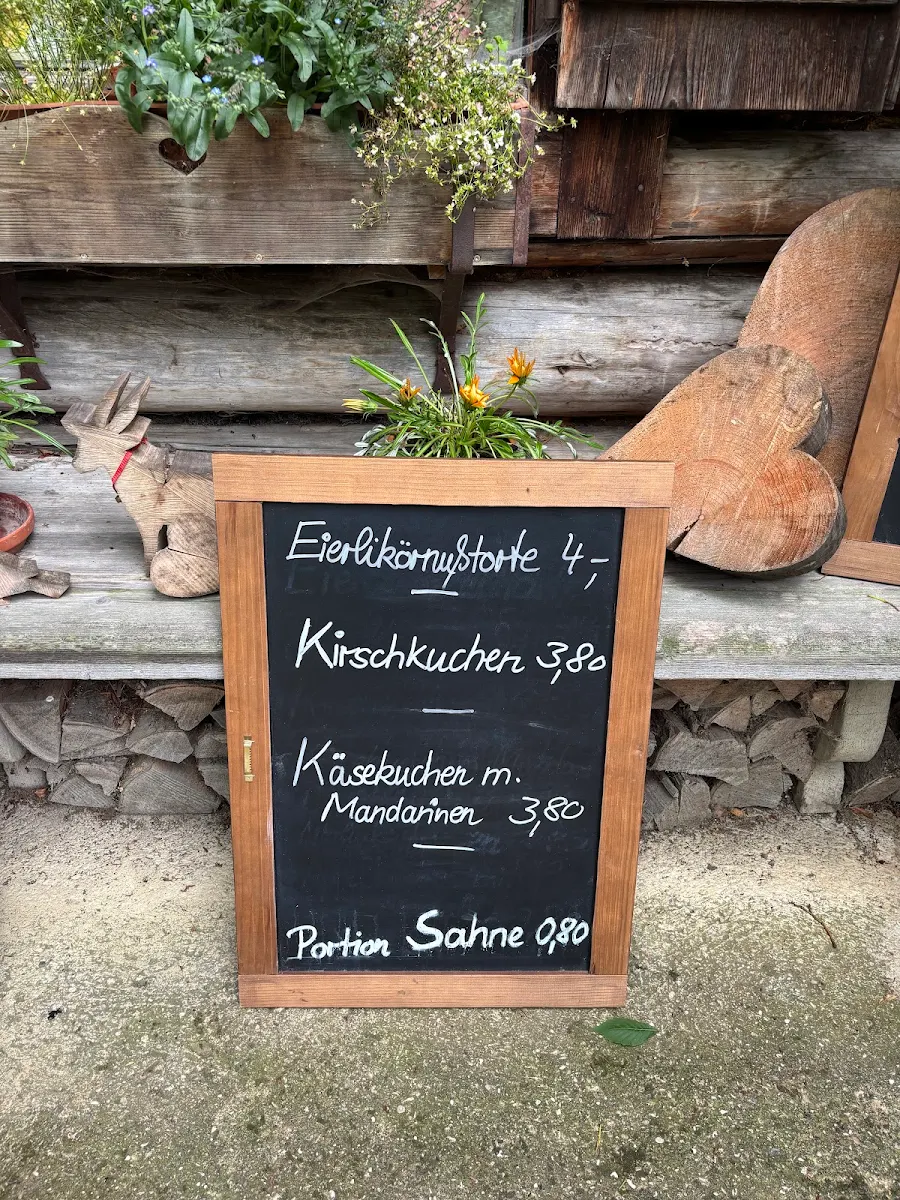 Eierlikörnußtorte 4,-
Kirschkuchen 3,80
Käsekuchen m.
Mandarinen 3,80
Portion Sahne 0,80